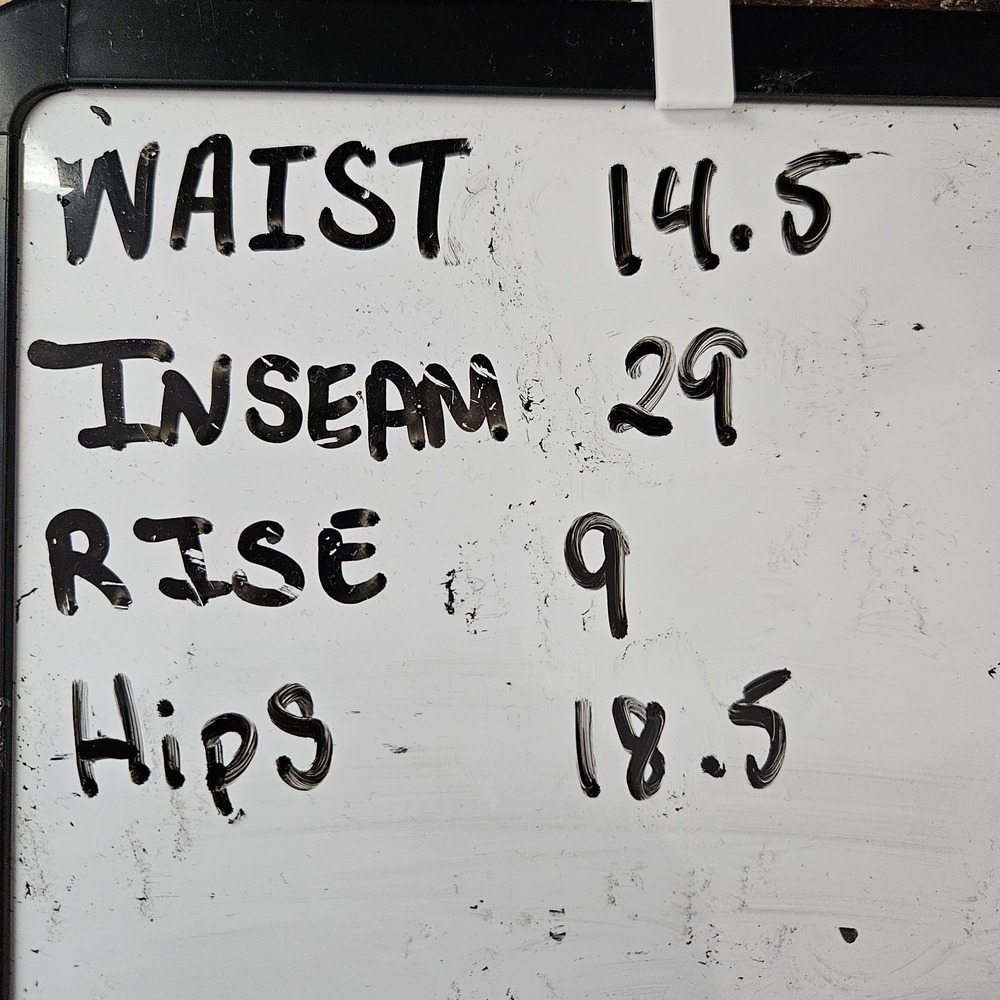 WAIST 14.5
INSEAM 29
RISE 9
HipS 18.5